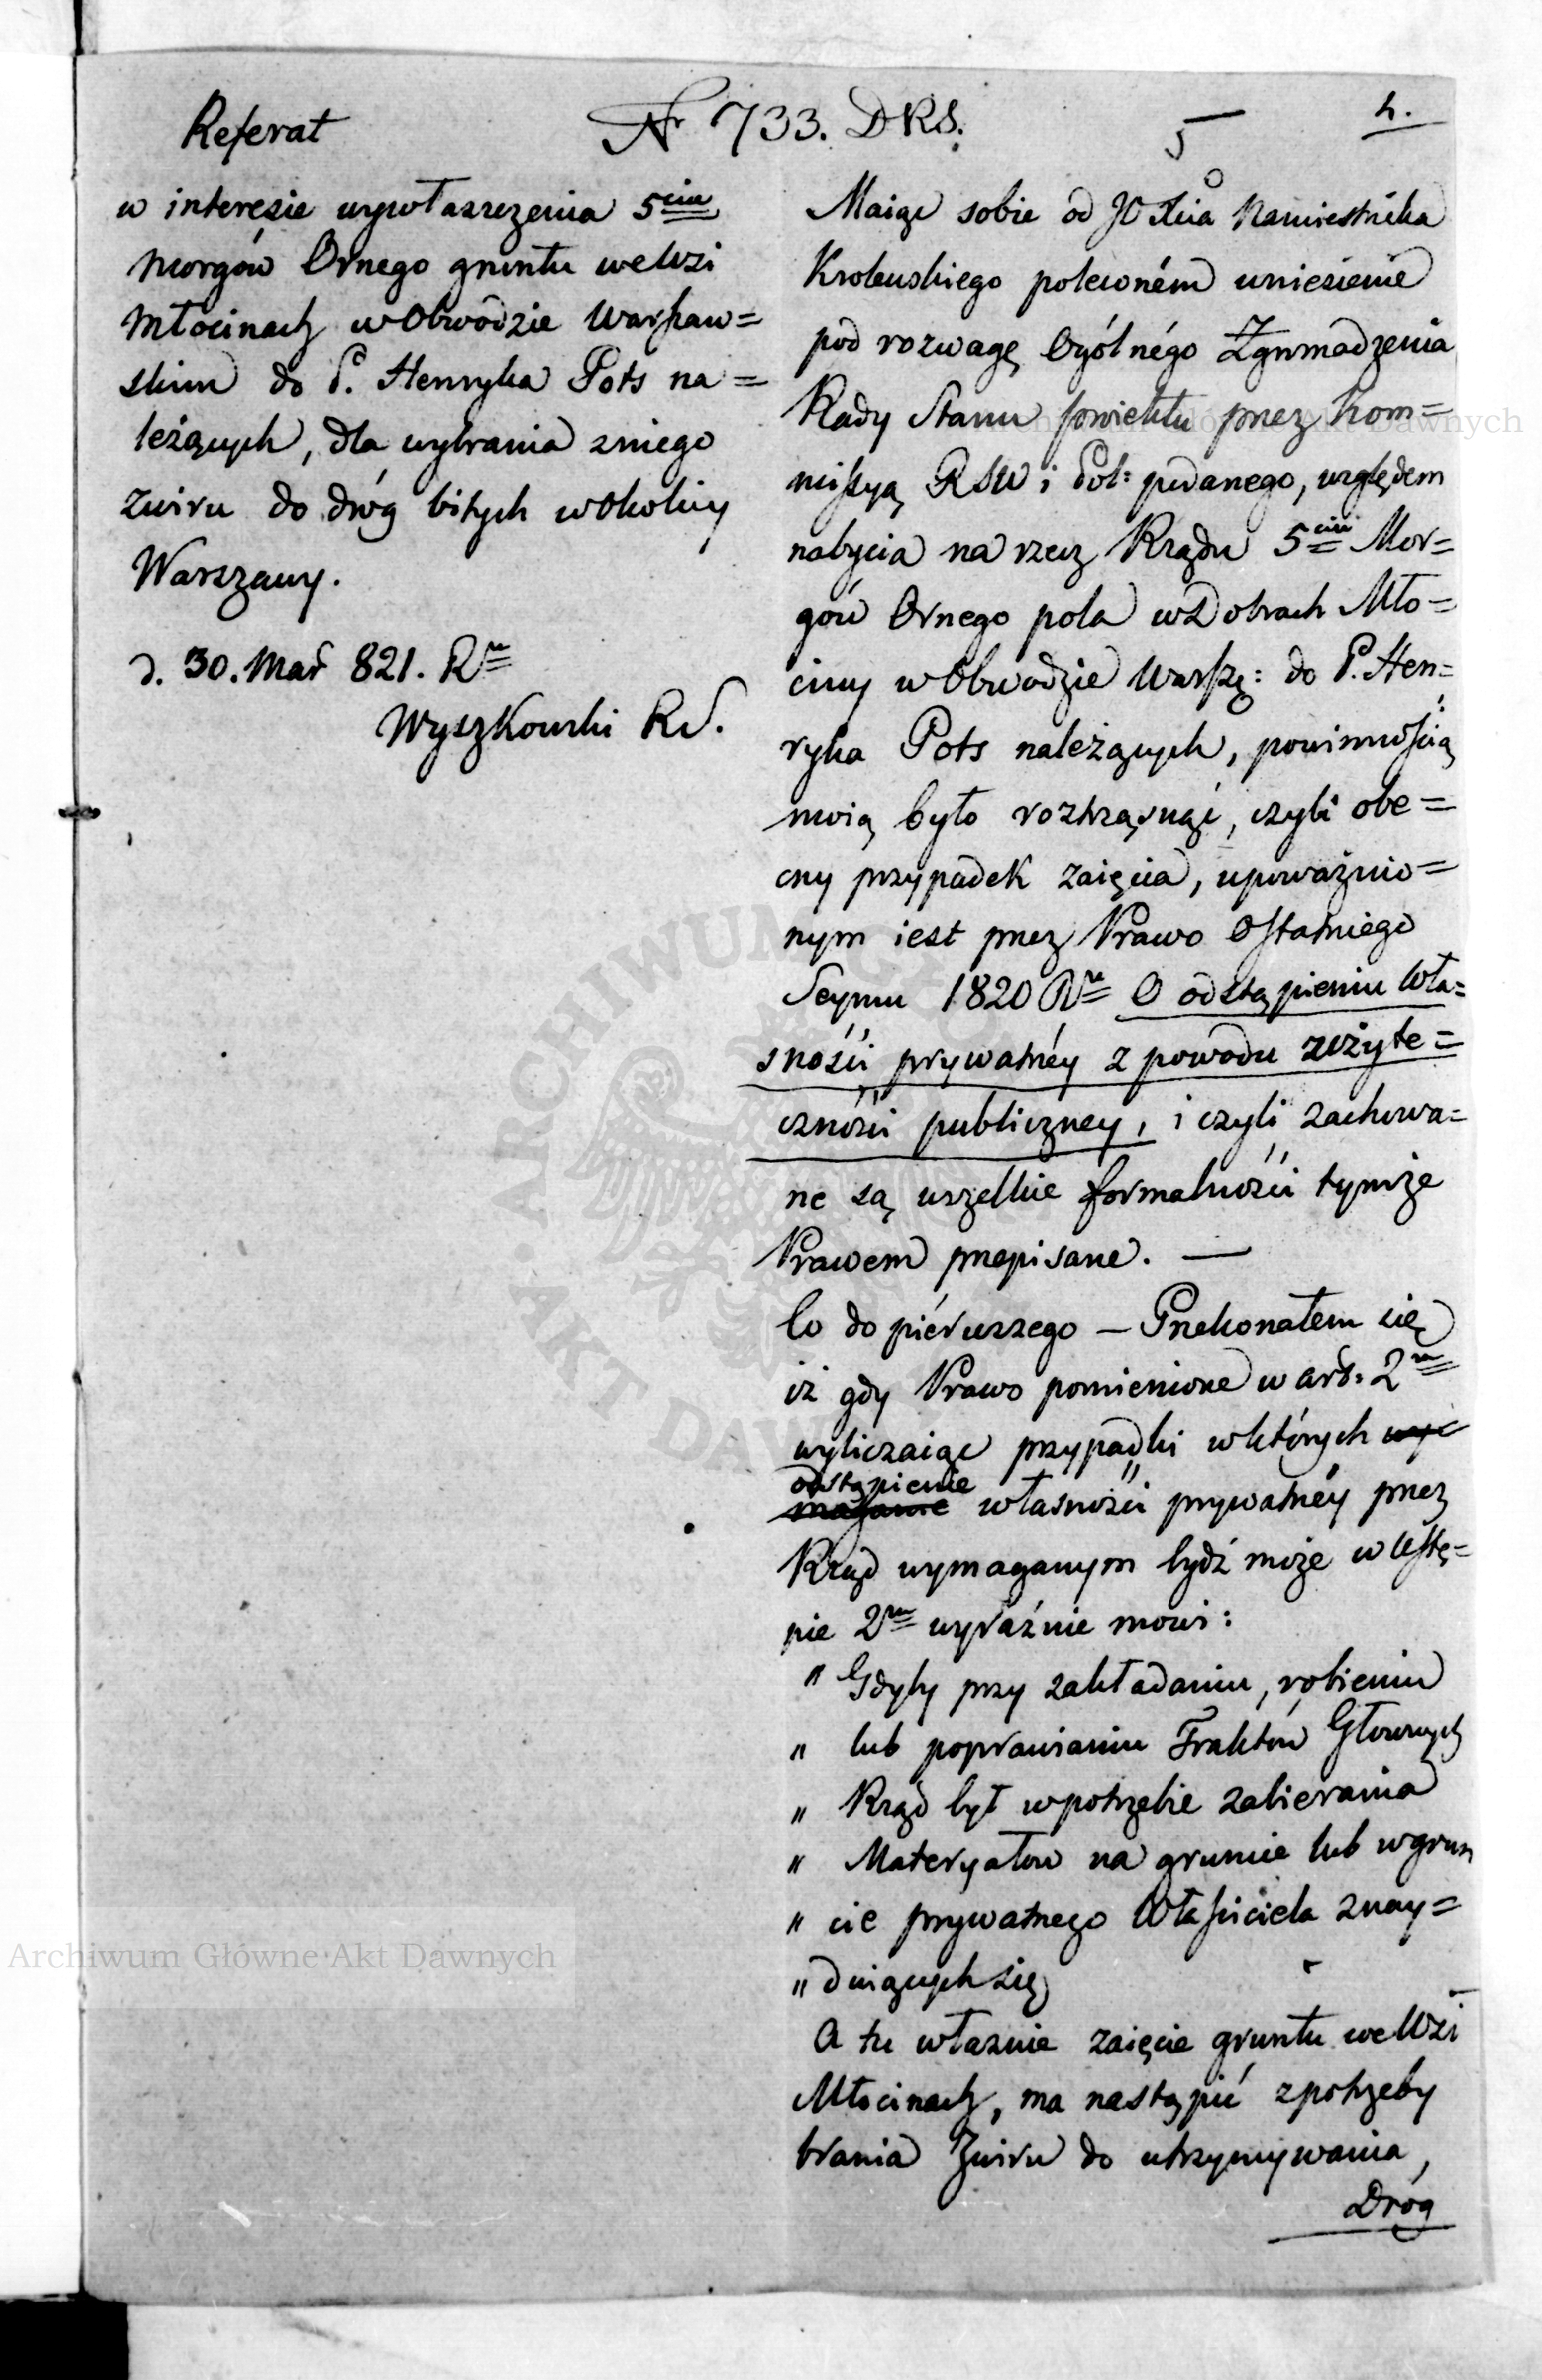 Referat
Nr 733. DRS.
5
4.
w interesie wywłaszczenia 5ciu
Morgów Ornego gruntu weWsi
Młocinach wObwodzie Warszaw=
skim do P. Henryka Pots na=
leżących, dla wybrania zniego
żwiru do dróg bitych wokolicy
Warszawy.
d. 30. Mar 821. Ru
Wyszkowski RS.
Maiąc sobie od JO Xcia Namiestnika
Krolewskiego poleconém wniesienie
pod rozwagę Ogólnégo Zgromadzenia
Rady Stanu proiektu przez Kom=
missyą RSW i Pol: podanego, względem
nabycia na rzecz Rządu 5ciu Mor=
gów Ornego pola wDobrach Mło=
ciny wObwodzie Warsz: do P. Hen=
ryka Pots należących, powinnością
moią było roztrząsnąć, czyli obe=
cny przypadek zaięcia, upoważnio=
nym iest przez Prawo Ostatniego
Seymu 1820 Ru O odstąpieniu Wła=
sności prywatnéy z powodu użyte=
czności publiczney, i czyli zachowa=
ne są wszelkie formalności tymże
Prawem przepisane. —
Co do piérwszego — Przekonałem się
iż gdy Prawo pomienione w art: 2m
wyliczaiąc przypadki wktórych
odstąpienie
własności prywatnéy przez
Rząd wymaganym bydź może w Ustę=
pie 2m wyraźnie mowi:
" Gdyby przy zakładaniu, robieniu
" lub poprawianiu Traktów Głownych
" Rząd był wpotrzebie zabierania
" Materyałow na gruncie lub wgrun
" cie prywatnego Właściciela znay=
" duiących się
A tu własnie zaięcie gruntu weWsi
Młocinach, ma nastąpić zpotrzeby
brania Żwiru do utrzymywania,
Dróg
Archiwum Główne Akt Dawnych